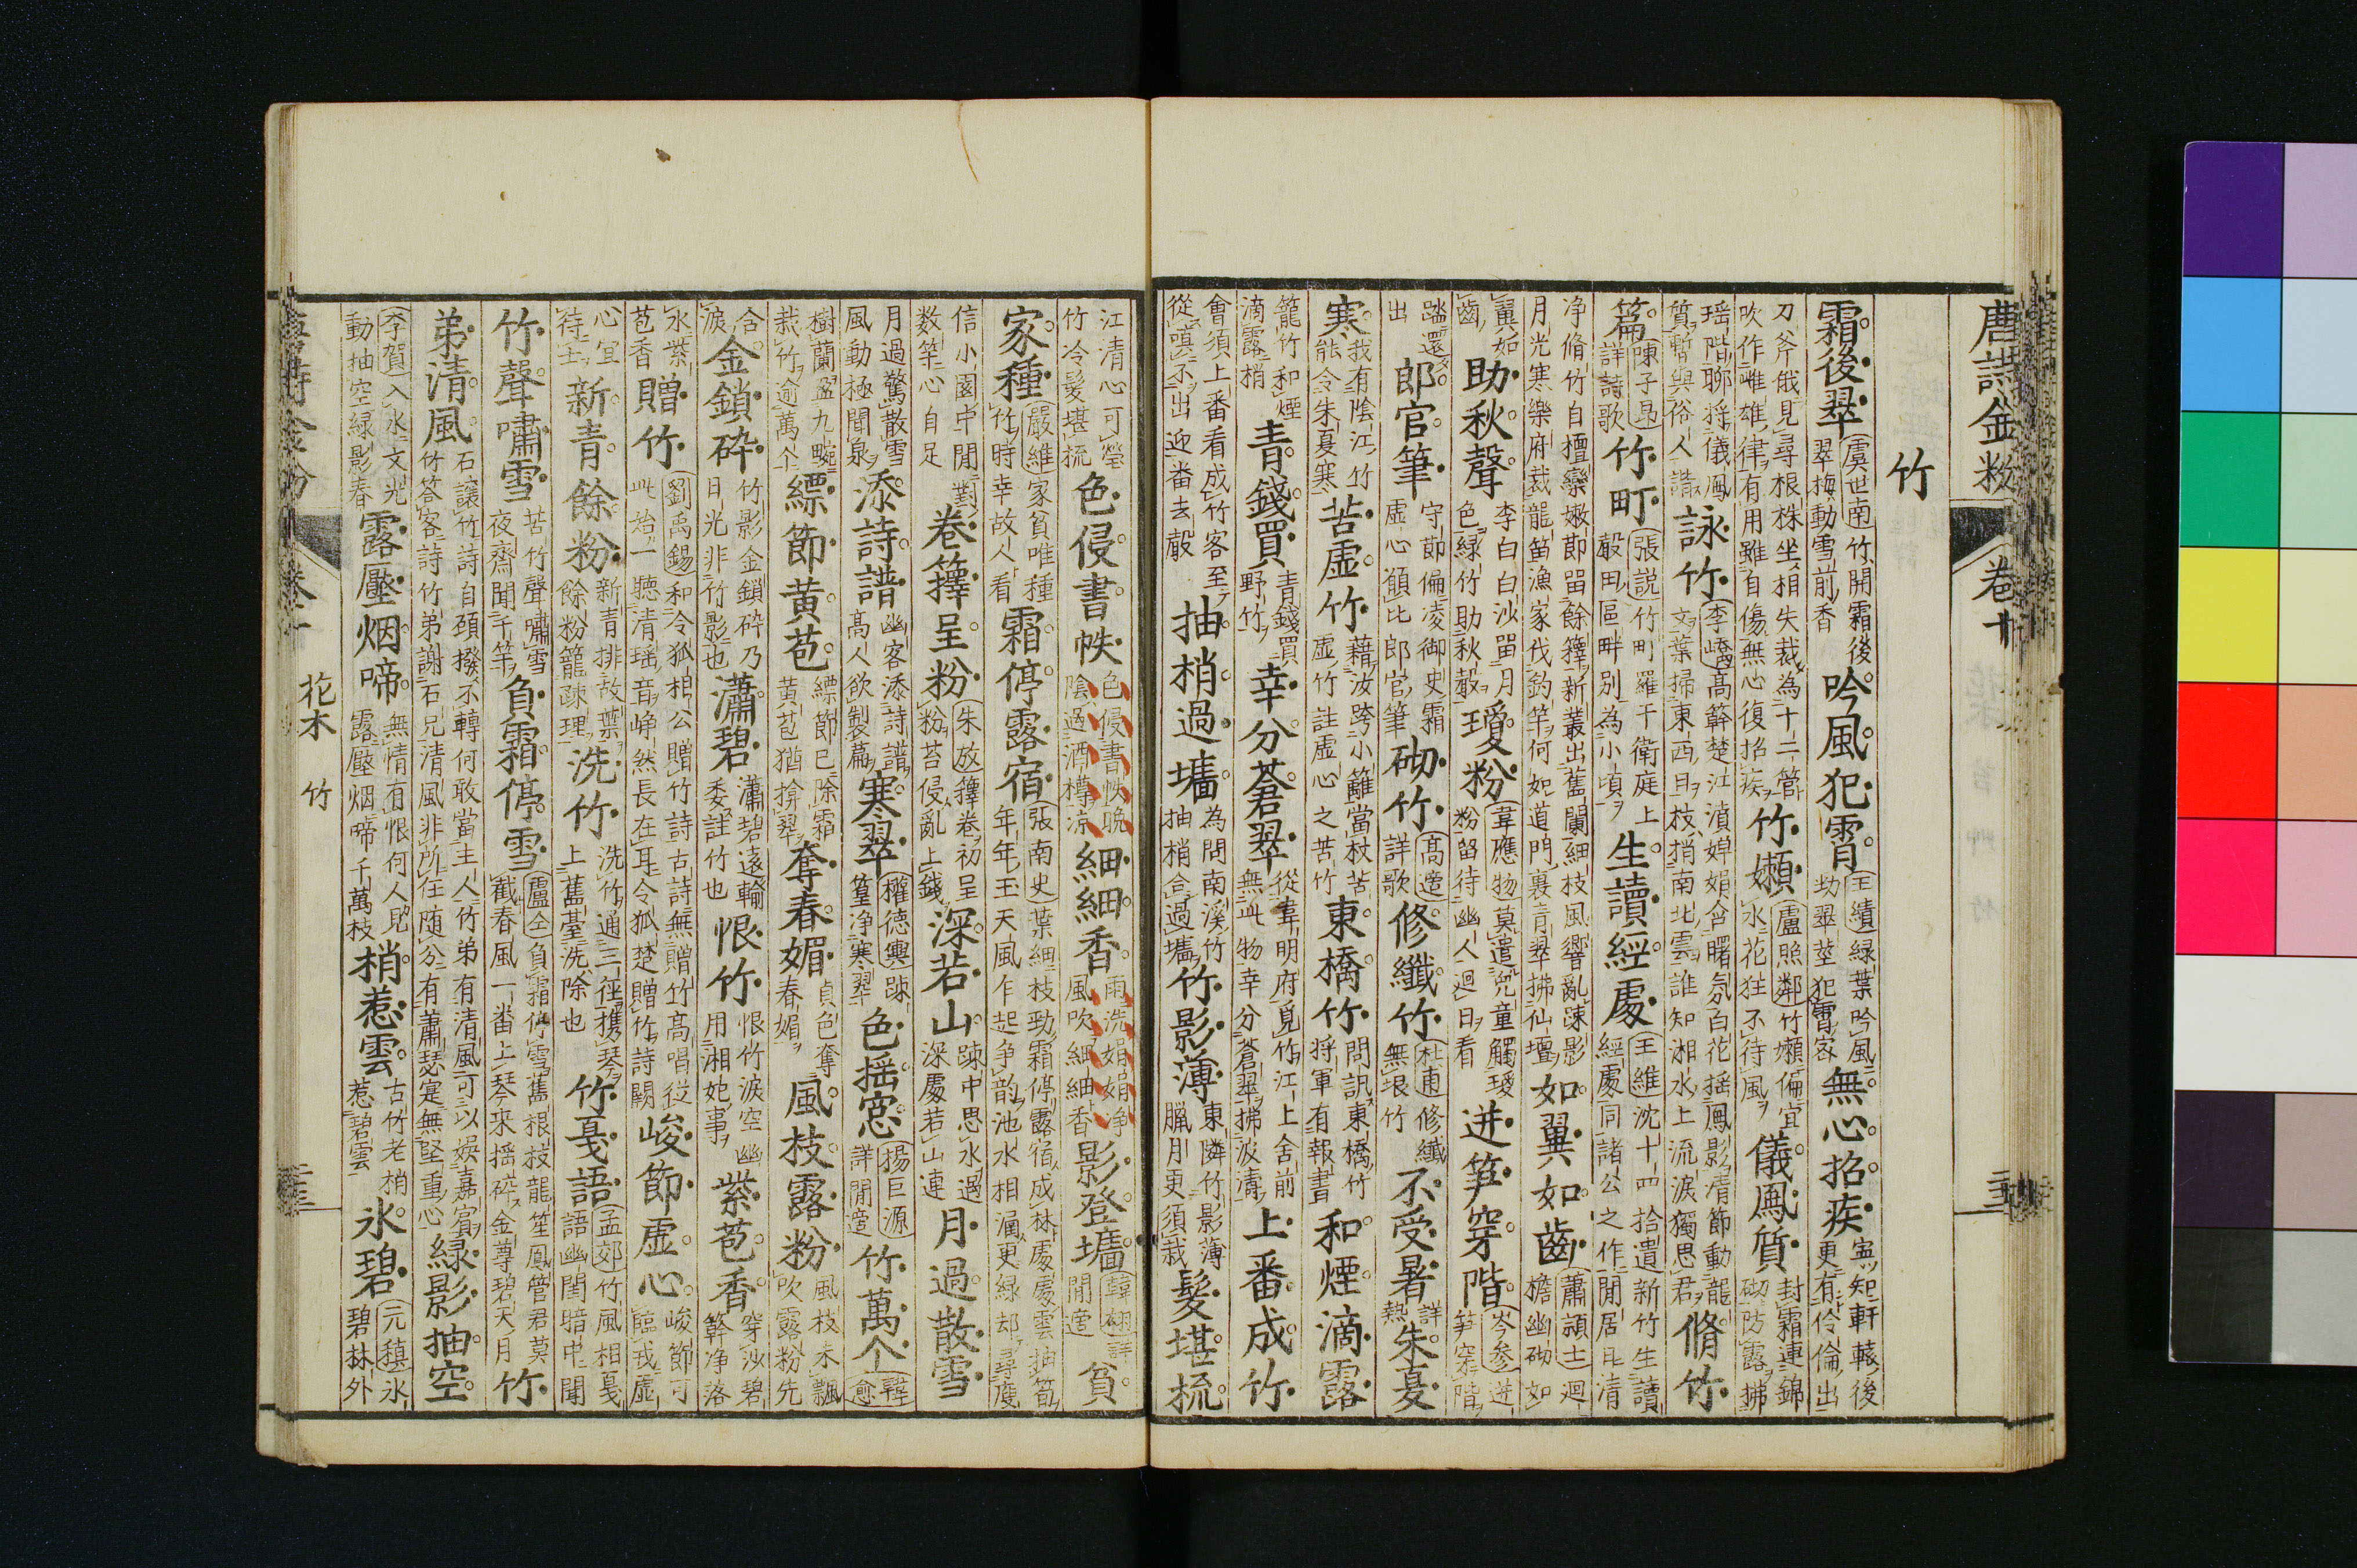 唐詩金粉 卷十
竹
霜後翠 虞世南 竹開霜後翠梅動雪前香 吟風犯霄 王績 綠葉吟風勁翠莖犯霄密 無心招疾 寧知軒轅後更有伶倫出
刀斧俄見尋根株坐相失裁為十二管吹作雌雄律有用雖自傷無心復招疾 竹嬾 盧照鄰 竹嬾偏宜水花狂不待風 儀鳳質 封霜連錦砌防露拂
瑤階聊將儀鳳質暫與俗人諧 詠竹 李嶠 高簳楚江濆嬋娟含曙氛白花搖鳳影清節動龍文葉掃東南日枝捎南北雲誰知湘水上流淚獨思君 脩竹
篇 陳子昂 詳詩歌 竹町 張說 竹町羅千衛庭上穀田區畔別為小頃 生讀經處 王維 沈十四拾遺新竹生讀經處同諸公之作閒居日清
淨脩竹自檀欒嫩節留餘籜新叢出舊闌細枝風響亂疎影月光寒樂府裁龍笛漁家伐釣竿何如道門裏青翠拂仙壇 如翼如齒 蕭頴士 迴檐幽砌如
翼如齒 助秋聲 李白 白沙留月色綠竹助秋聲 璦粉 韋應物 莫遣兒童觸璦粉留待幽人迴日看 迸筍穿階 岑參 迸筍穿階
踏還出 郎官筆 守節偏凌御史霜虛心願比郎官筆 砌竹 高適 詳歌 修纖竹 杜甫 修纖無垠竹 不受暑 詳熱 朱夏
寒 我有陰江竹能令朱夏寒 苦虛竹 藉汝跨小籬當杖苦虛竹註虛心之苦竹 東橋竹 問訊東橋竹將軍有報書 和煙滴露
籠竹和煙滴露梢 青錢買 青錢買野竹 幸分蒼翠 從韋明府覓竹江上舍前無此物幸分蒼翠拂波濤 上番成竹
會須上番看成竹客至從嗔不出迎番去聲 抽梢過墻 為問南溪竹抽梢合過墻 竹影薄 東隣竹影薄臘月更須栽 髮堪梳
江清心可瑩竹冷髮堪梳 色侵書帙 色侵書帙晚陰過酒樽涼 細細香 雨洗娟娟淨風吹細細香 影登墻 韓翃 詳閒適 貧
家種 嚴維 家貧唯種竹時幸故人看 霜停露宿 張南史 葉細枝勁霜停露宿成林處處雲抽筍年年玉天風乍起爭韵池水相涵更綠却尋庾
信小園中閒對數竿心自足 卷籜呈粉 朱放 籜卷初呈粉苔侵亂上錢 深若山 疎中思水過深處若山連 月過散雪
月過驚散雪風動極聞泉 添詩譜 幽客添詩譜高人欲製篇 寒翠 權德輿 疎篁淨寒翠 色搖窓 楊巨源 詳閒適 竹萬个 韓愈
樹蘭盈九畹栽竹逾萬个 縹節黃苞 縹節已除霜黃苞猶揜翠 奪春媚 貞色奪春媚 風枝露粉 風枝未飄吹露粉先
含淚 金鎖碎 竹影金鎖碎日光非竹影也 瀟碧 瀟碧遠輸委註竹也 恨竹 恨竹淚空幽用湘妃事 紫苞香 穿沙碧簳淨落
水紫苞香 贈竹 劉禹錫 和令狐相公贈竹詩古詩無贈竹高唱從此始一聽清瑤音崢然長在耳令狐楚贈竹詩闕 峻節虛心 峻節可臨戎虛
心宜待士 新青餘粉 新青排故葉餘粉籠疎理 洗竹 洗竹通三徑攜琴上舊臺洗除也 竹戞語 孟郊 竹風相戞語幽閨暗中聞
竹聲嘯雪 苦竹聲嘯雪夜齋聞千竿 負霜停雪 盧仝 負霜停雪舊根枝龍笙鳳管君莫截春風一番上琴來搖碎金尊碧天月 竹
弟清風 石讓竹詩自頸撥不轉何敢當主人竹弟有清風可以娛嘉賓竹答客詩竹弟謝石兄清風非所任随分有蕭瑟寔無堅重心 綠影抽空
李賀 入水文光動抽空綠影春 露壓烟啼 無情有恨何人見露壓烟啼千萬枝 梢惹雲 古竹老梢惹碧雲 氷碧 元稹 氷碧林外
花木 竹